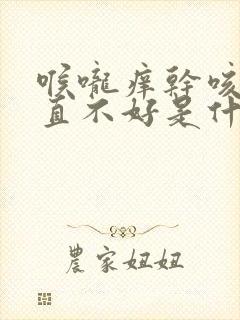 喉嚨痒幹咳
直不好是什
農家妞妞